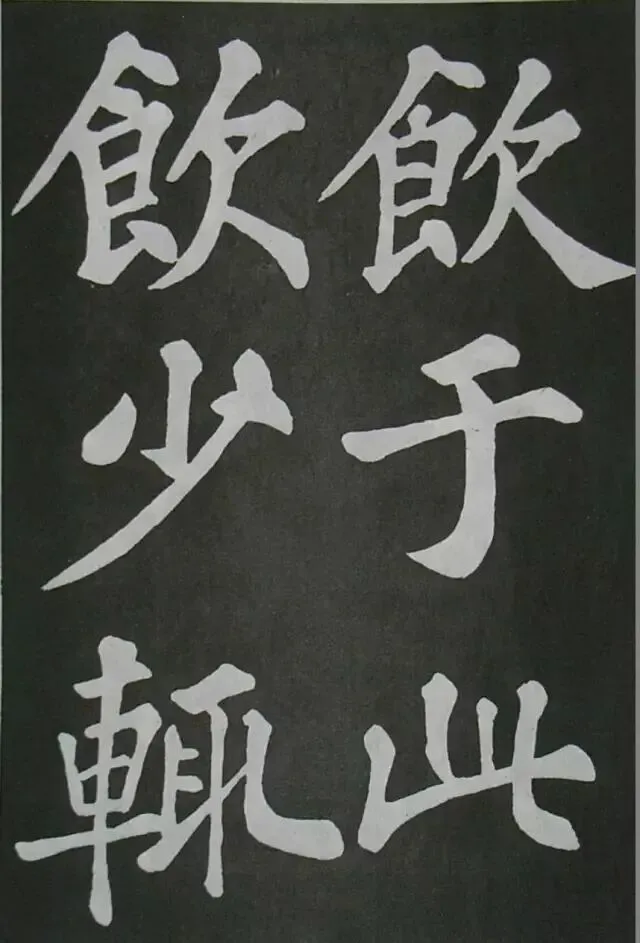 飲于此
飲少輒